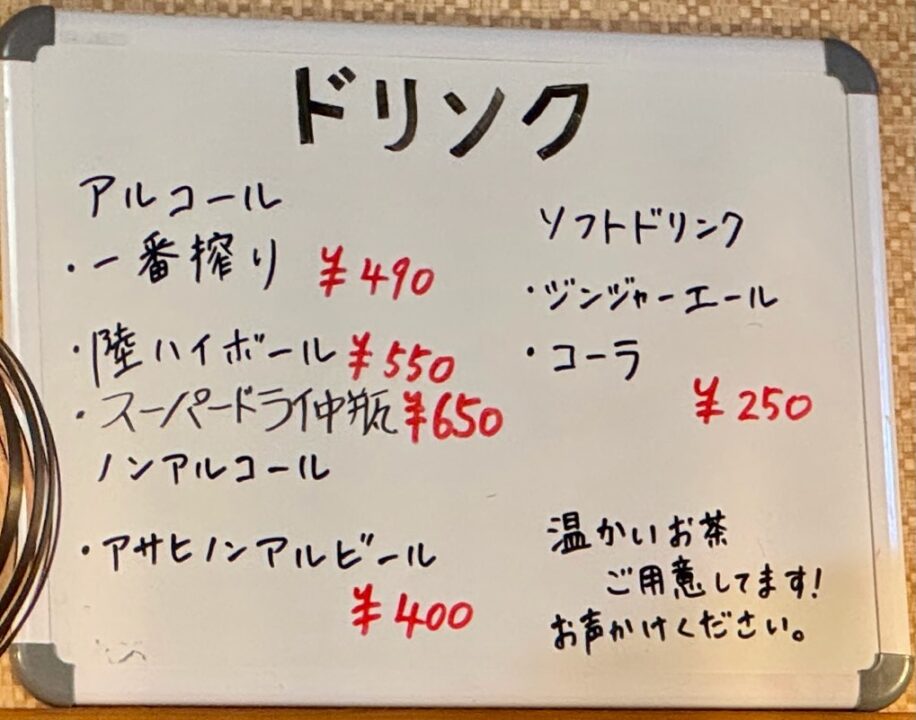 ドリンク
アルコール
・一番搾り ¥490
・陸ハイボール ¥550
・スーパードライ中瓶 ¥650
ノンアルコール
・アサヒノンアルビール
¥400
ソフトドリンク
・ジンジャーエール
・コーラ
¥250
温かいお茶
ご用意してます!
お声かけください。